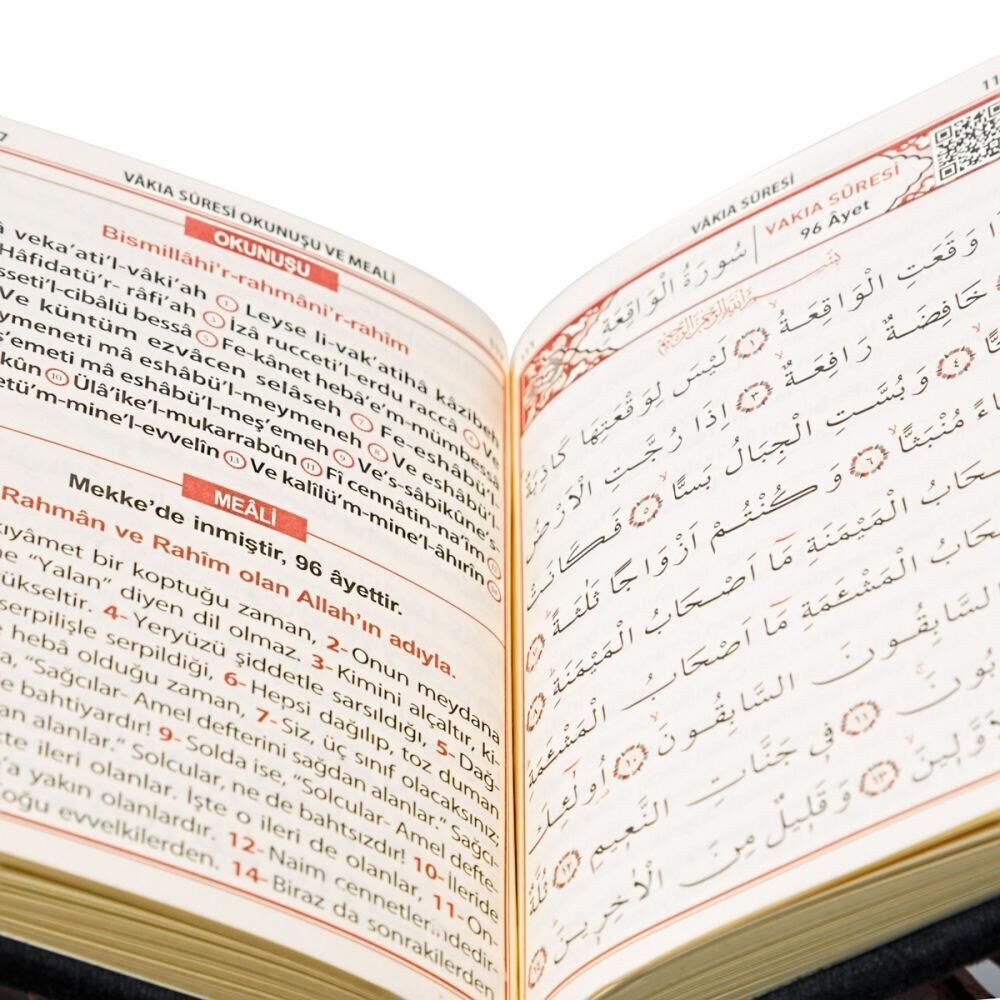 7
VÂKIA SÛRESİ OKUNUŞU VE MEALİ
OKUNUŞU
Bismillâhi'r-rahmâni'r-rahîm
veka'ati'l-vâki'ah ① Leyse li-vak'atihâ kâzibeh
Hâfidatü'r- râfi'ah ③ İzâ rucceti'l-erdu raccâ ④ Ve
sseti'l-cibâlü bessâ ⑤ Fe-kânet hebâ'e'm-mümbessâ
Ve küntüm ezvâcen selâseh ⑦ Fe-eshâbü'l-
ymeneti mâ eshâbü'l-meymeneh ⑧ Ve eshâbü'l-
ş'emeti mâ eshâbü'l-meş'emeh ⑨ Ve's-sâbikûne's-
kûn ⑩ Ülâ'ike'l-mukarrabûn ⑪ Fî cennâtin-na'îm ⑫
etü'm-mine'l-evvelîn ⑬ Ve kalîlü'm-mine'l-âhırîn ⑭
MEÂLİ
Mekke'de inmiştir, 96 âyettir.
Rahmân ve Rahîm olan Allah'ın adıyla.
kıyâmet bir koptuğu zaman, 2- Onun meydana
ne "Yalan" diyen dil olmaz. 3- Kimini alçaltır, ki-
yükseltir. 4- Yeryüzü şiddetle sarsıldığı, 5- Dağ-
serpilişle serpildiği, 6- Hepsi dağılıp, toz duman
e hebâ olduğu zaman, 7- Siz, üç sınıf olacaksınız;
a, "Sağcılar- Amel defterini sağdan alanlar." Sağcı-
e bahtiyardır! 9- Solda ise, "Solcular- Amel defte-
an alanlar." Solcular, ne de bahtsızdır! 10- İleride
te ileri olanlar. İşte o ileri de olanlar, 11- On-
'a yakın olanlardır. 12- Naim cennetlerindedir-
oğu evvelkilerden. 14- Biraz da sonrakilerden
11
VÂKIA SÛRESİ
سُورَةُ الْوَاقِعَةِ
VAKIA SÛRESİ
96 Âyet
بِسْمِ اللّٰهِ الرَّحْمٰنِ الرَّحِيمِ
وَقَعَتِ الْوَاقِعَةُ ﴿١﴾ لَيْسَ لِوَقْعَتِهَا كَاذِبَةٌ
خَافِضَةٌ رَافِعَةٌ ﴿٣﴾ اِذَا رُجَّتِ الْاَرْضُ
﴿٤﴾ وَبُسَّتِ الْجِبَالُ بَسًّا ﴿٥﴾ فَكَانَتْ
مُنْبَثًّا ﴿٦﴾ وَكُنْتُمْ اَزْوَاجًا ثَلٰثَةً ﴿٧﴾
الْمَيْمَنَةِ مَٓا اَصْحَابُ الْمَيْمَنَةِ ﴿٨﴾
الْمَشْـَٔمَةِ مَٓا اَصْحَابُ الْمَشْـَٔمَةِ
السَّابِقُونَ السَّابِقُونَ ﴿١٠﴾ اُولٰٓئِكَ
﴿١١﴾ فِى جَنَّاتِ النَّعِيمِ ﴿١٢﴾ ثُلَّةٌ
﴿١٣﴾ وَقَلِيلٌ مِنَ الْاٰخِرِينَ ﴿١٤﴾